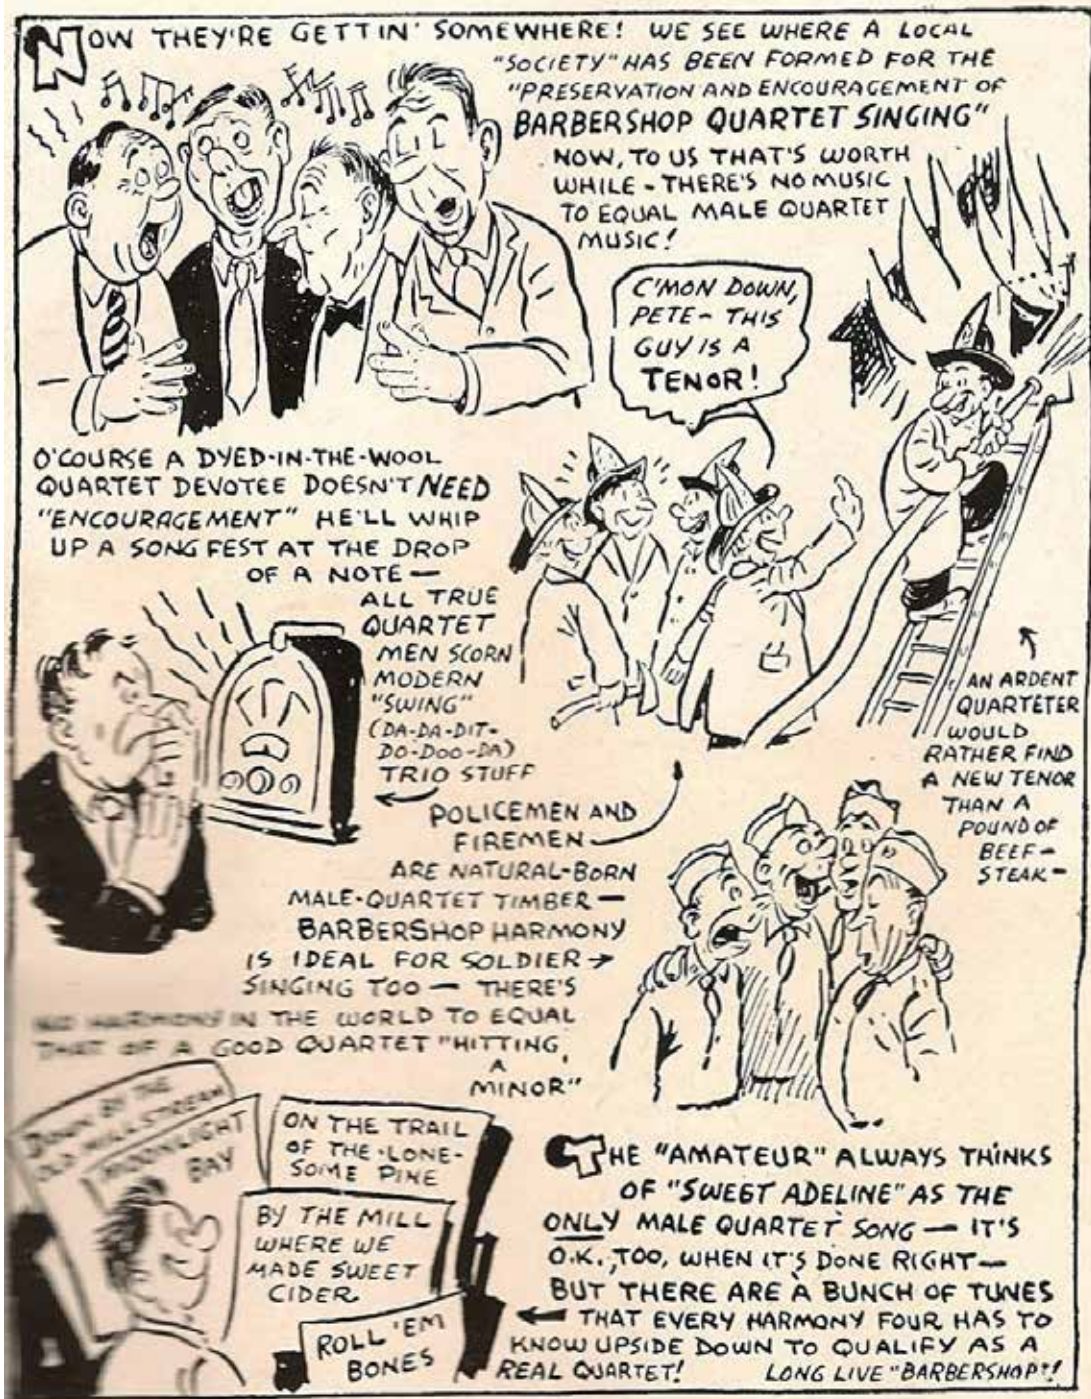 NOW THEY'RE GETTIN' SOMEWHERE! WE SEE WHERE A LOCAL
"SOCIETY" HAS BEEN FORMED FOR THE
"PRESERVATION AND ENCOURAGEMENT OF
BARBERSHOP QUARTET SINGING"
NOW, TO US THAT'S WORTH
WHILE - THERE'S NO MUSIC
TO EQUAL MALE QUARTET
MUSIC!
C'MON DOWN,
PETE - THIS
GUY IS A
TENOR!
O'COURSE A DYED-IN-THE-WOOL
QUARTET DEVOTEE DOESN'T NEED
"ENCOURAGEMENT" HE'LL WHIP
UP A SONG FEST AT THE DROP
OF A NOTE —
ALL TRUE
QUARTET
MEN SCORN
MODERN
"SWING"
(DA-DA-DIT-
DO-DOO-DA)
TRIO STUFF
AN ARDENT
QUARTETER
WOULD
RATHER FIND
A NEW TENOR
THAN A
POUND OF
BEEF-
STEAK -
POLICEMEN AND
FIREMEN
ARE NATURAL-BORN
MALE-QUARTET TIMBER —
BARBERSHOP HARMONY
IS IDEAL FOR SOLDIER
SINGING TOO — THERE'S
NO HARMONY IN THE WORLD TO EQUAL
THAT OF A GOOD QUARTET "HITTING
A
MINOR"
DOWN BY THE
OLD MILLSTREAM
MOONLIGHT
BAY
ON THE TRAIL
OF THE LONE-
SOME PINE
BY THE MILL
WHERE WE
MADE SWEET
CIDER
ROLL 'EM
BONES
THE "AMATEUR" ALWAYS THINKS
OF "SWEET ADELINE" AS THE
ONLY MALE QUARTET SONG — IT'S
O.K., TOO, WHEN IT'S DONE RIGHT —
BUT THERE ARE A BUNCH OF TUNES
THAT EVERY HARMONY FOUR HAS TO
KNOW UPSIDE DOWN TO QUALIFY AS A
REAL QUARTET! LONG LIVE "BARBERSHOP"!